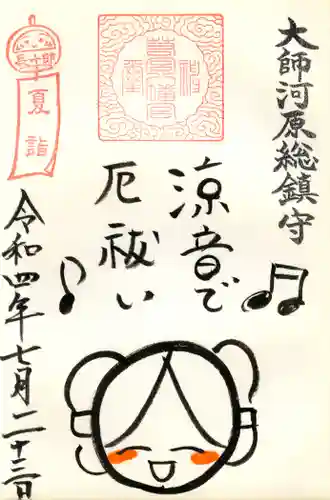 大師河原総鎮守
涼音で
厄祓い
夏詣
令和四年七月二十三日